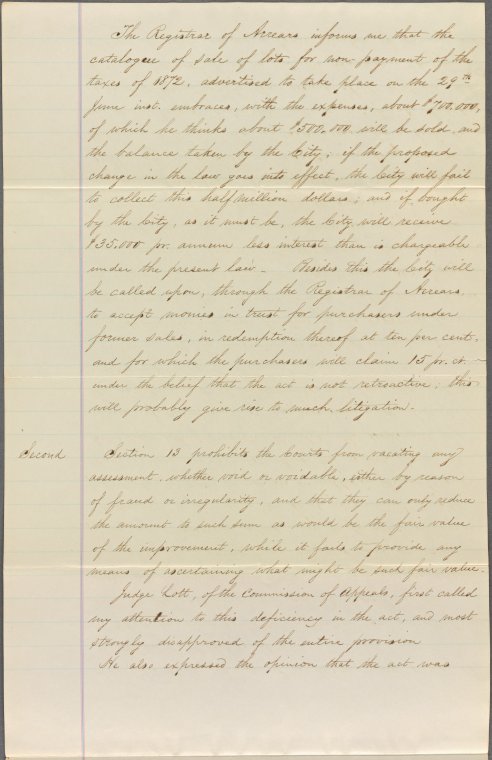 The Registrar of Arrears informs me that the
catalogue of sale of lots for non payment of the
taxes of 1872, advertised to take place on the 29th
June inst. embraces, with the expenses, about $700,000,
of which he thinks about $500,000 will be sold, and
the balance taken by the City; if the proposed
change in the law goes into effect, the City will fail
to collect this half million dollars; and if bought
by the City, as it must be, the City will receive
$35,000 pr. annum less interest than is chargeable
under the present law. Besides this the City will
be called upon, through the Registrar of Arrears,
to accept monies in trust for purchasers under
former sales, in redemption thereof at ten per cent.
and for which the purchasers will claim 15 pr. ct. -
under the belief that the act is not retroactive; this
will probably give rise to much litigation.
Second Section 13 prohibits the Courts from vacating any
assessment, whether void or voidable, either by reason
of fraud or irregularity, and that they can only reduce
the amount to such sum as would be the fair value
of the improvement, while it fails to provide any
means of ascertaining what might be such fair value.
Judge Lott, of the Commission of Appeals, first called
my attention to this deficiency in the act, and most
strongly disapproved of the entire provision
He also expressed the opinion that the act was